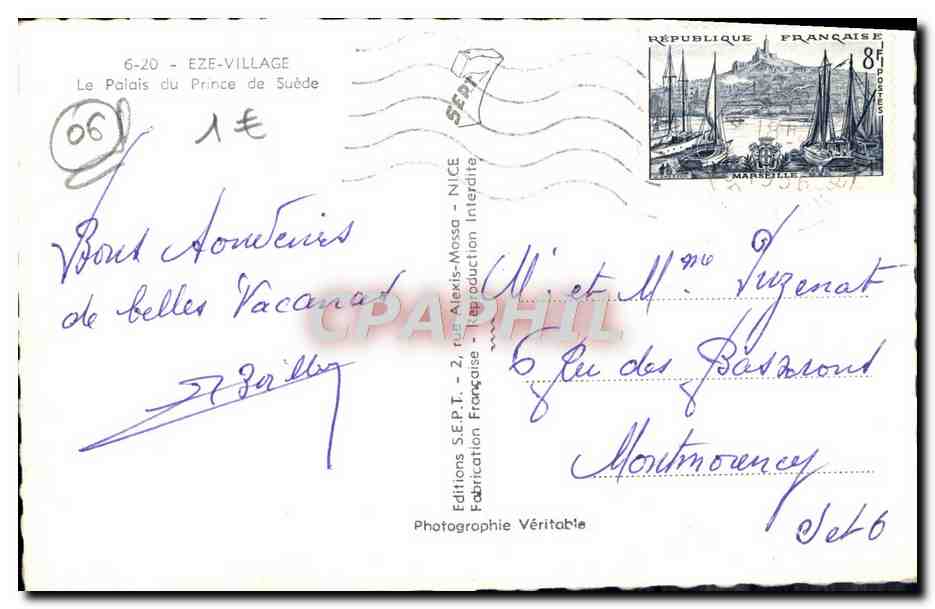 6-20 - EZE-VILLAGE
Le Palais du Prince de Suède
06
1€
SEPT
RÉPUBLIQUE FRANÇAISE
8F
POSTES
MARSEILLE
Bons Souvenirs
de belles Vacances
Editions S.E.P.T. - 2, rue Alexis-Mossa - NICE
Fabrication Française - Reproduction Interdite
CPAPHIL
M. et Mme Puzenat
6 Rue des
Montmorency
S et O
Photographie Véritable